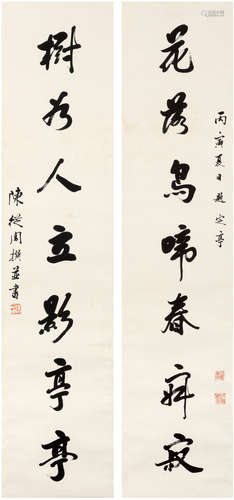 花落鳥啼春寂寂
丙寅夏日題定亭
樹如人立影亭亭
陳從周撰並書